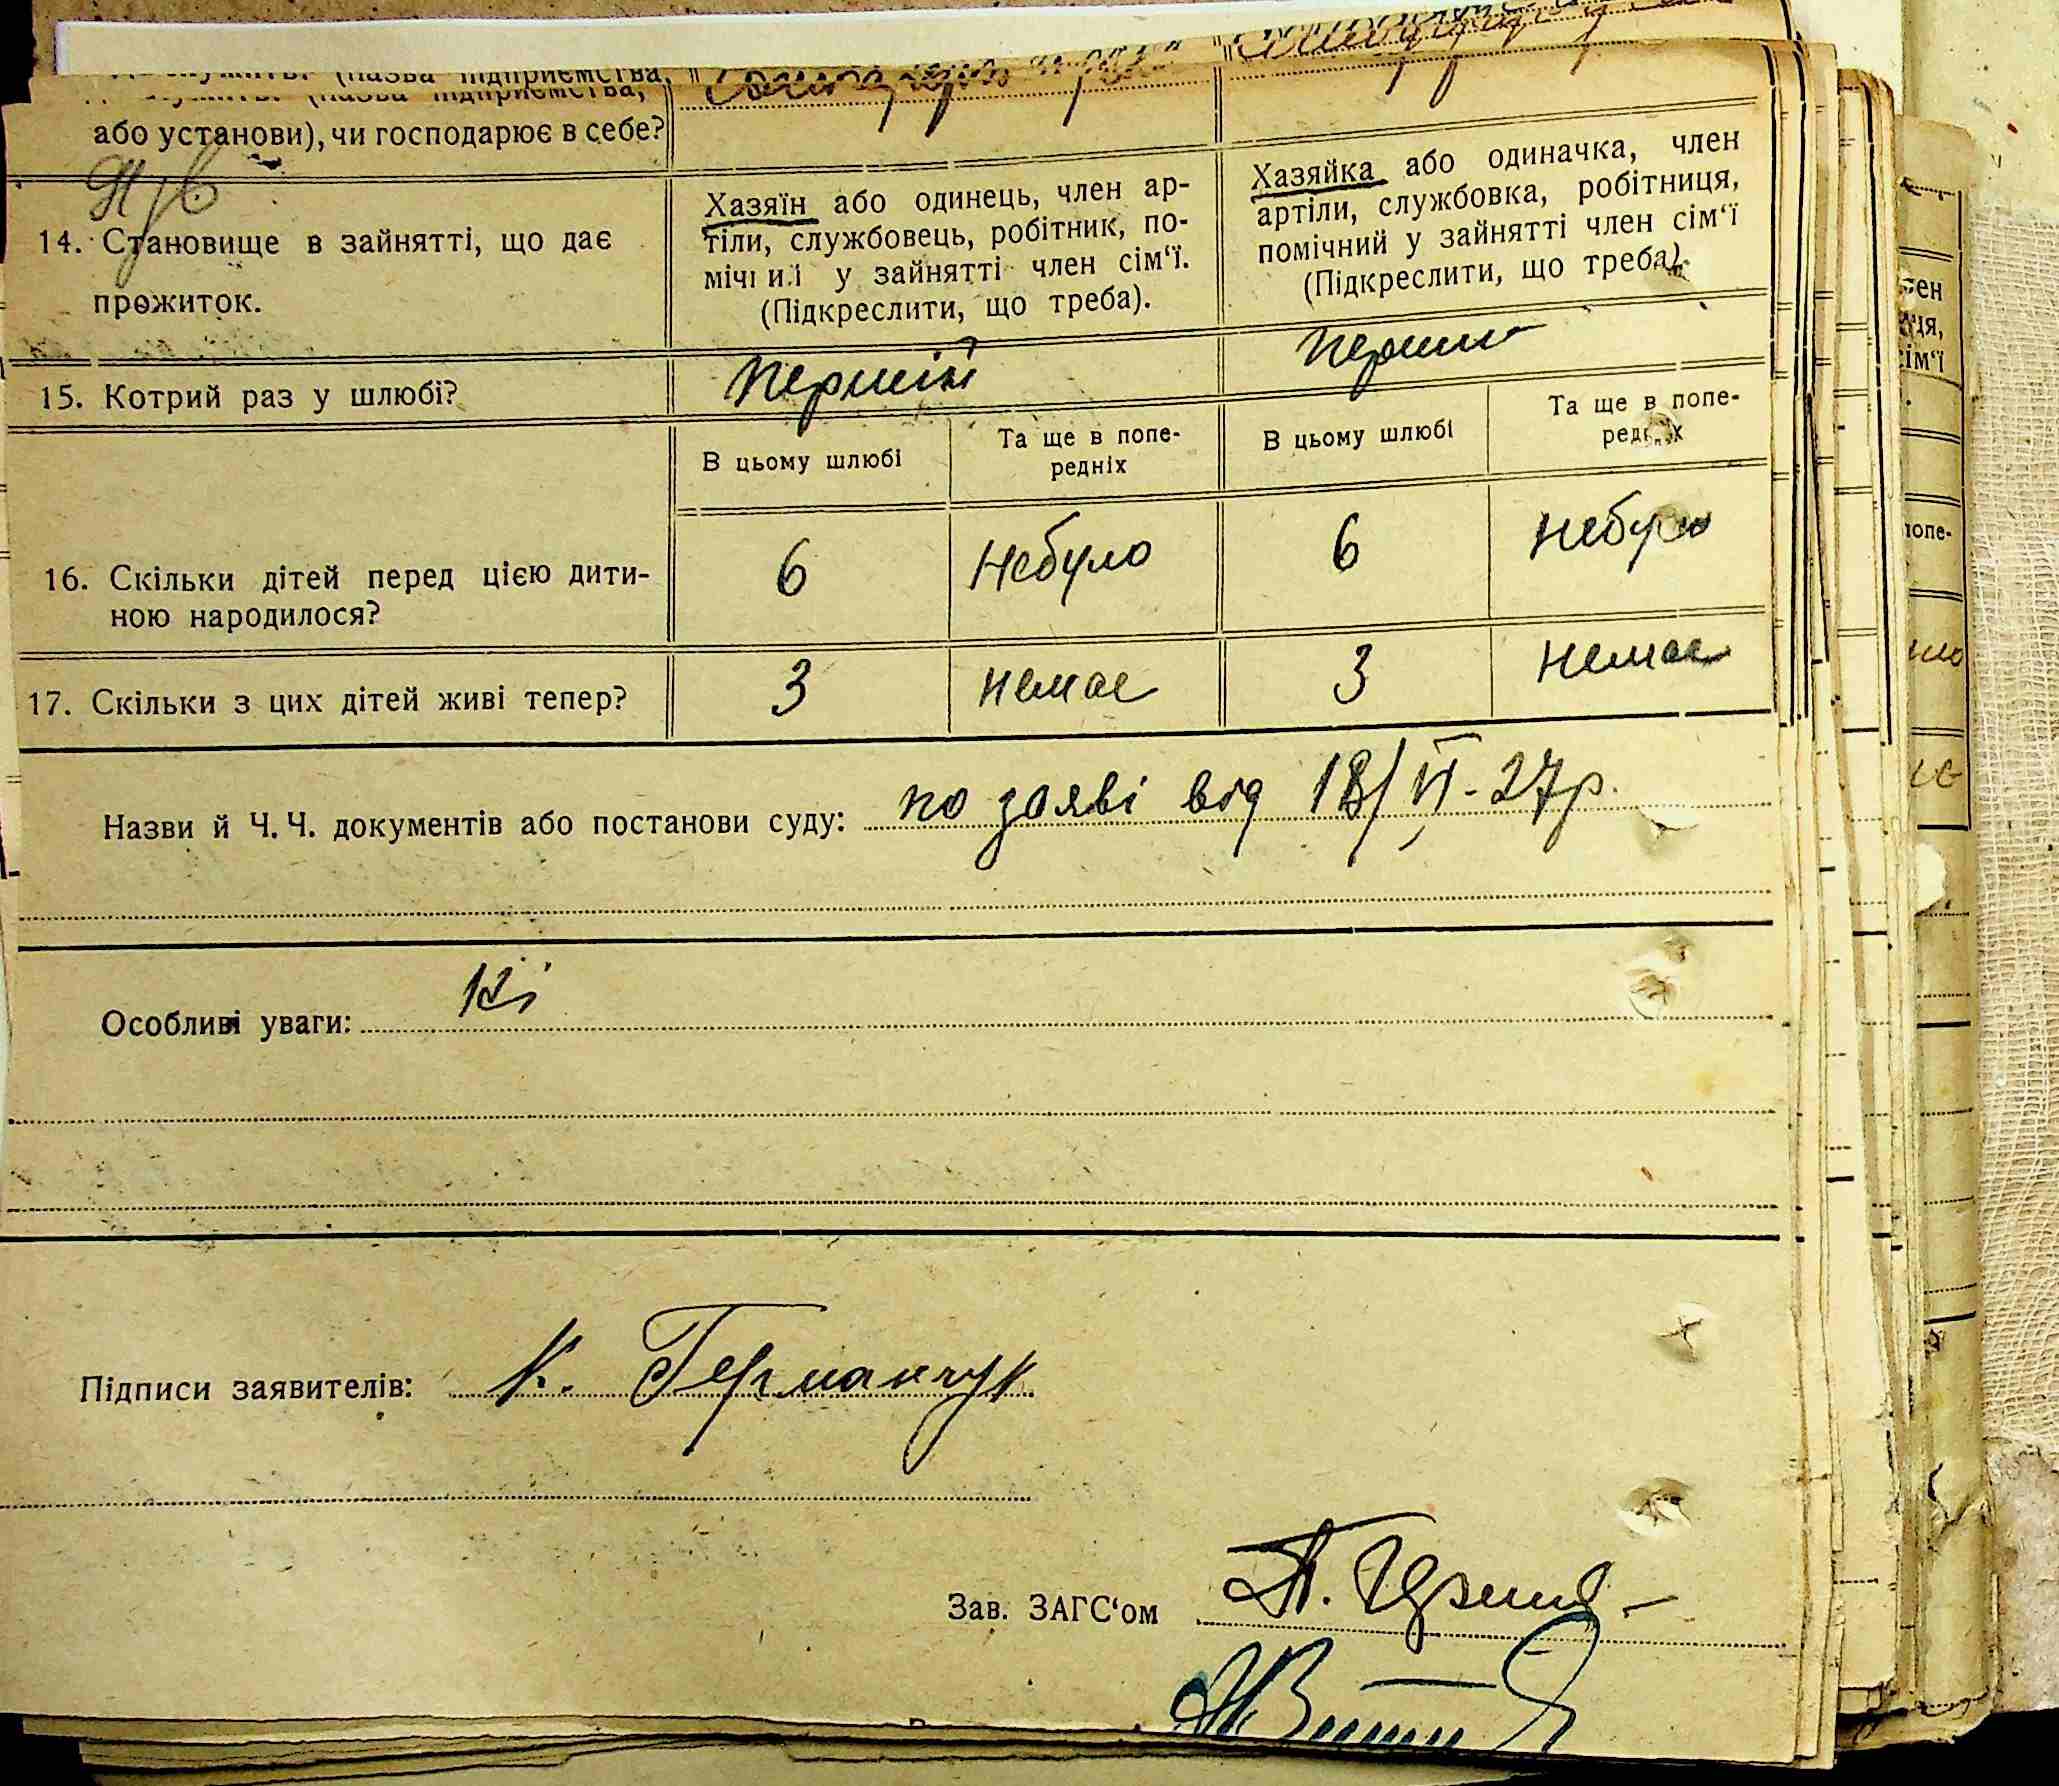 (назва підприємства,
або установи), чи господарює в себе?
14. Становище в зайнятті, що дає
прожиток.
Хазяїн або одинець, член ар-
тіли, службовець, робітник, по-
мічний у зайнятті член сім‘ї.
(Підкреслити, що треба).
Хазяйка або одиначка, член
артіли, службовка, робітниця,
помічний у зайнятті член сім‘ї
(Підкреслити, що треба).
15. Котрий раз у шлюбі?
Перший
В цьому шлюбі
Та ще в попе-
редніх
В цьому шлюбі
Та ще в попе-
редніх
16. Скільки дітей перед цією дити-
ною народилося?
6 Небуло 6 Небуло
17. Скільки з цих дітей живі тепер?
3 немає 3 немає
Назви й Ч. Ч. документів або постанови суду: по заяві від 18/VI-27р.
Особливі уваги:
Підписи заявителів: К. Германчук
Зав. ЗАГС‘ом